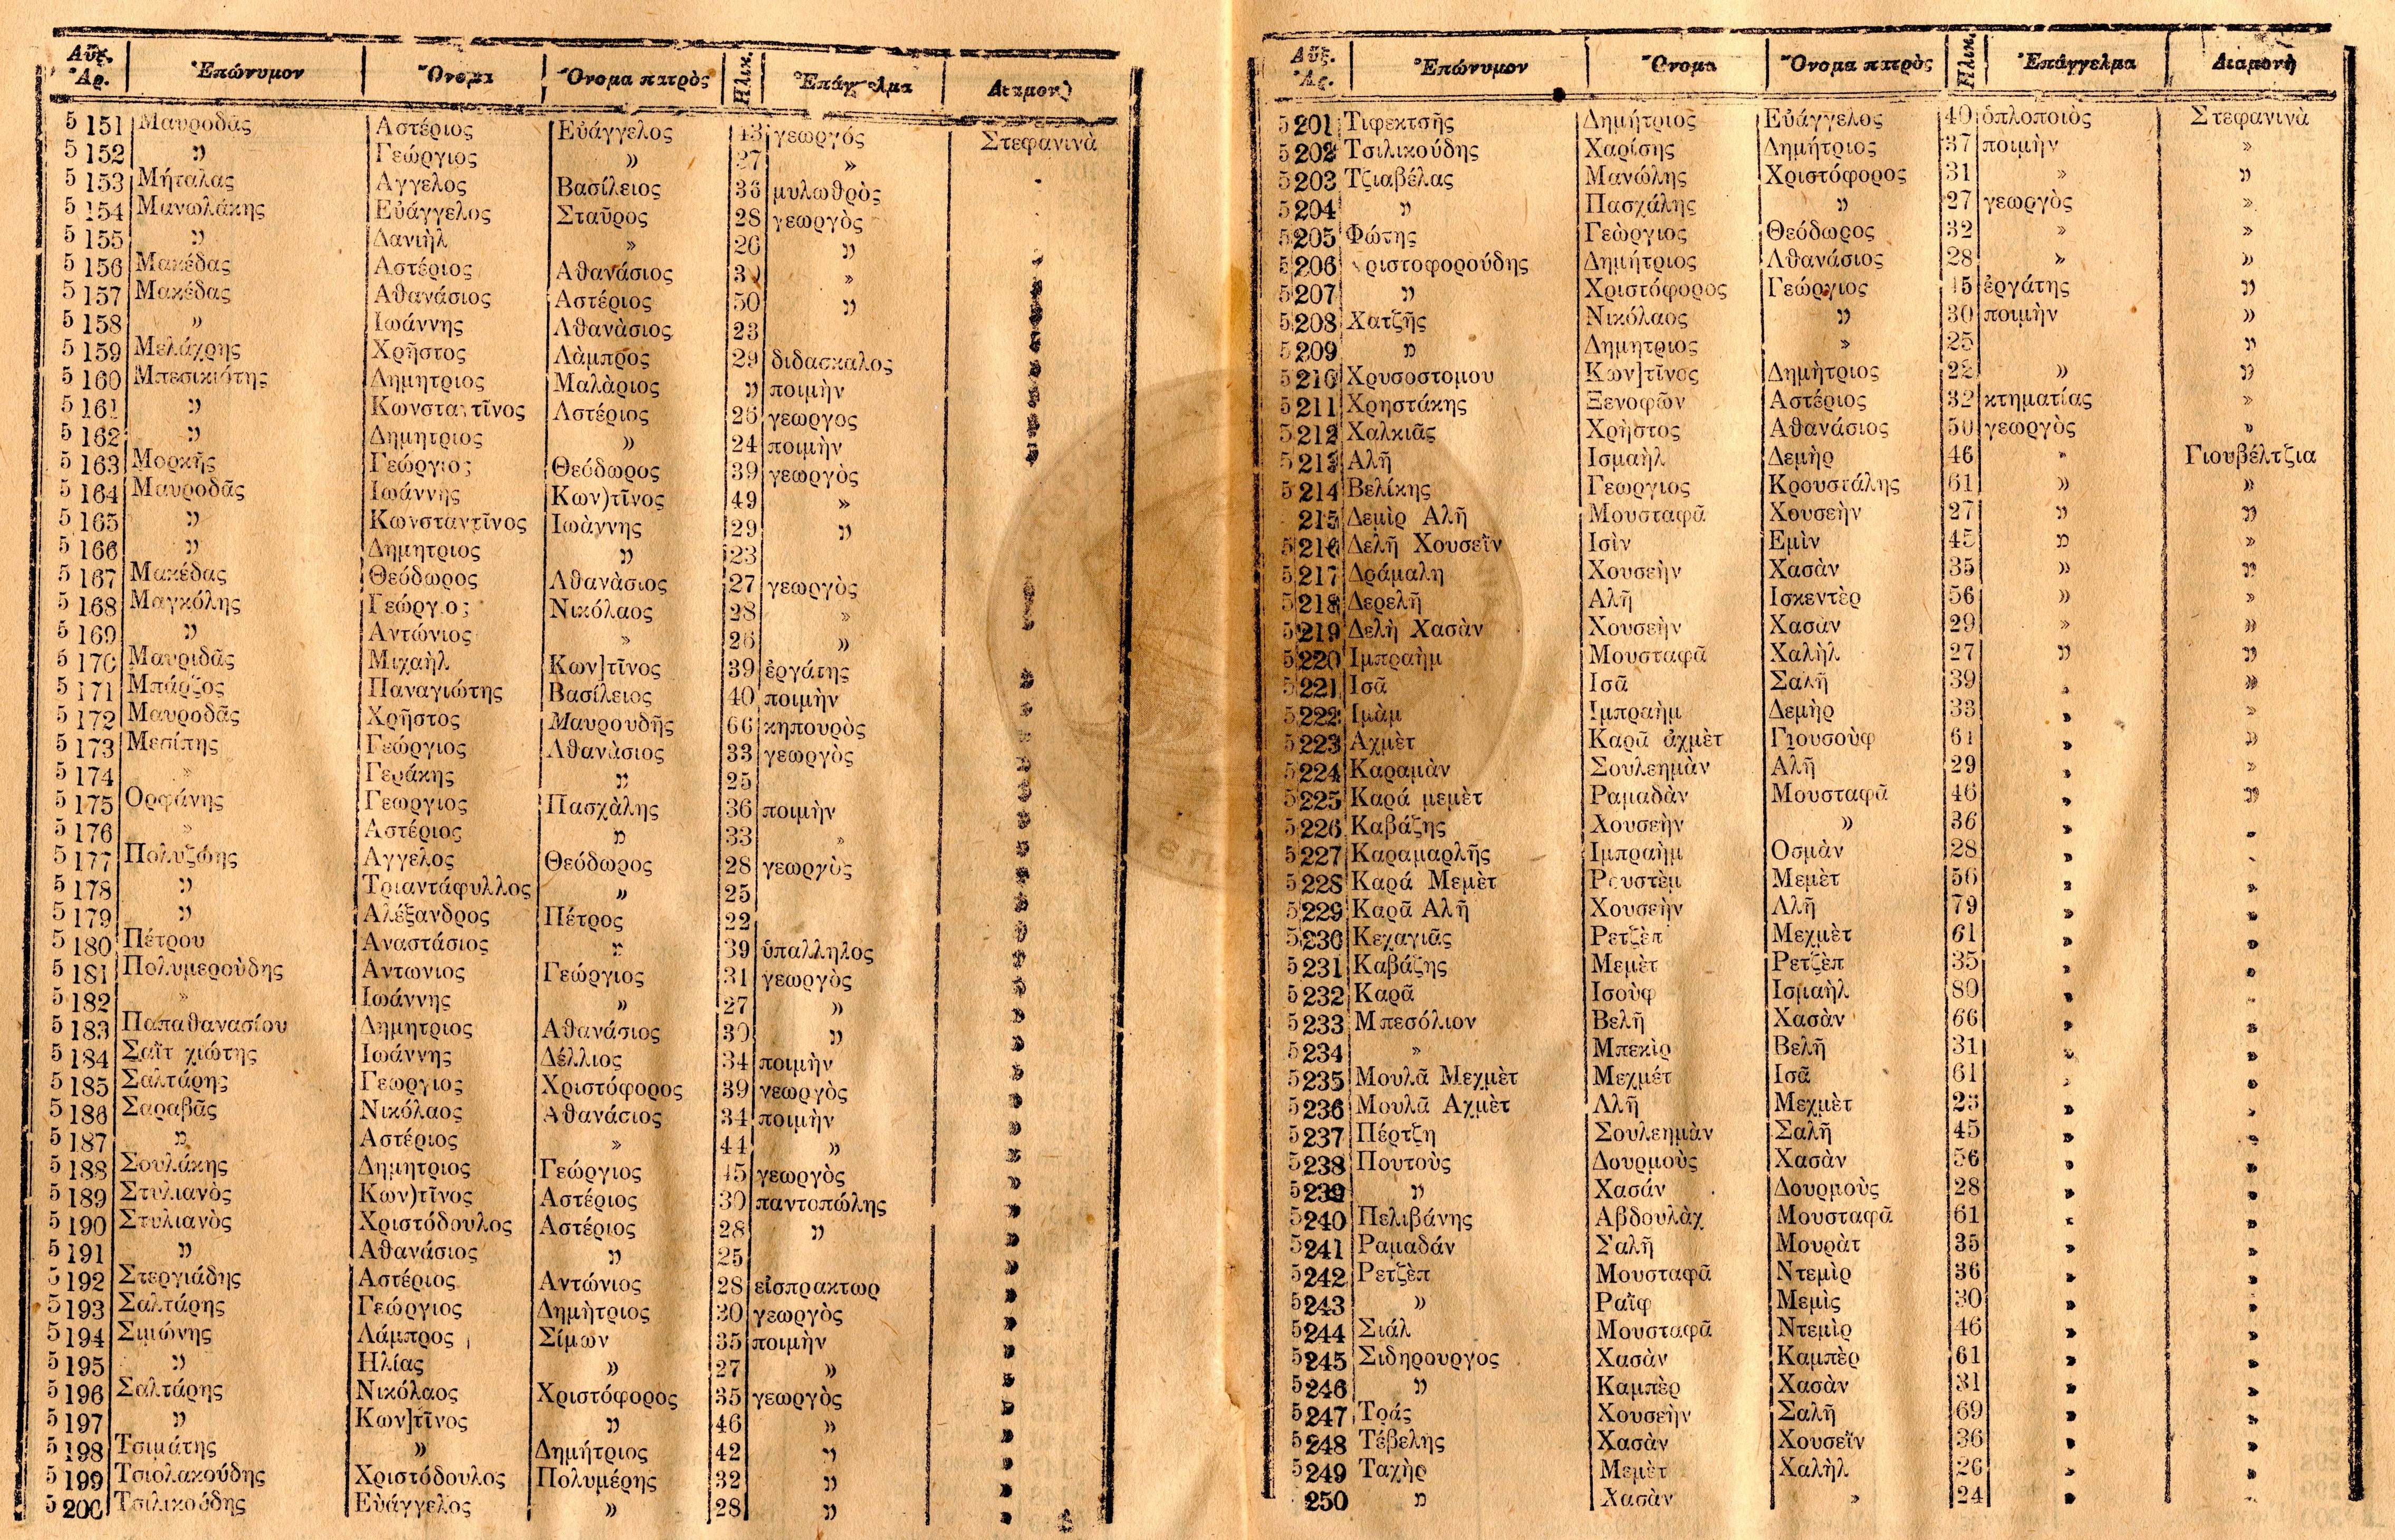 Αὔξ. Ἀρ. Ἐπώνυμον Ὄνομα Ὄνομα πατρὸς Ἡλικ. Ἐπάγγελμα Διαμονὴ
5151 Μαυροδᾶς Αστέριος Εὐάγγελος 43 γεωργός Στεφανινὰ
5152 » Γεώργιος » 27 »
5153 Μήταλας Αγγελος Βασίλειος 36 μυλωθρὸς
5154 Μανωλάκης Εὐάγγελος Σταῦρος 28 γεωργὸς
5155 » Δανιὴλ » 26 »
5156 Μακέδας Αστέριος Αθανάσιος »
5157 Μακέδας Αθανάσιος Αστέριος 50 »
5158 » Ιωάννης Αθανὰσιος 23
5159 Μελάχρης Χρῆστος Λὰμπρος 29 διδασκαλος
5160 Μπεσικιότης Δημητριος Μαλὰριος » ποιμὴν
5161 » Κωνσταντῖνος Αστέριος 26 γεωργος
5162 » Δημητριος » 24 ποιμὴν
5163 Μορκῆς Γεώργιος Θεόδωρος 39 γεωργὸς
5164 Μαυροδᾶς Ιωάννης Κων)τῖνος 49 »
5165 » Κωνσταντῖνος Ιωὰννης 29 »
5166 » Δημητριος » 23
5167 Μακέδας Θεόδωρος Αθανὰσιος 27 γεωργὸς
5168 Μαγκόλης Γεώργιος Νικόλαος 28 »
5169 » Αντώνιος » 26 »
5170 Μαυριδᾶς Μιχαὴλ Κων]τῖνος 39 ἐργάτης
5171 Μπάρζος Παναγιώτης Βασίλειος 40 ποιμὴν
5172 Μαυροδᾶς Χρῆστος Μαυρουδῆς 66 κηπουρὸς
5173 Μεσίπης Γεώργιος Αθανὰσιος 33 γεωργὸς
5174 » Γεράκης » 25
5175 Ορφάνης Γεωργιος Πασχὰλης 36 ποιμὴν
5176 » Αστέριος » 33 »
5177 Πολυζώης Αγγελος Θεόδωρος 28 γεωργὸς
5178 » Τριαντάφυλλος » 25
5179 » Αλέξανδρος Πέτρος 22
5180 Πέτρου Αναστάσιος » 39 ὑπαλληλος
5181 Πολυμεροὺδης Αντωνιος Γεώργιος 31 γεωργὸς
5182 » Ιωάννης » 27 »
5183 Παπαθανασίου Δημητριος Αθανάσιος 30 »
5184 Σαῒτ χιώτης Ιωάννης Δέλλιος 34 ποιμὴν
5185 Σαλτάρης Γεωργιος Χριστόφορος 39 γεωργὸς
5186 Σαραβᾶς Νικόλαος Αθανάσιος 34 ποιμὴν
5187 » Αστέριος » 44 »
5188 Σουλάκης Δημητριος Γεώργιος 45 γεωργὸς
5189 Στυλιανὸς Κων)τῖνος Αστέριος 30 παντοπώλης
5190 Στυλιανὸς Χριστόδουλος Αστέριος 28 »
5191 » Αθανάσιος » 25
5192 Στεργιάδης Αστέριος Αντώνιος 28 εἰσπρακτωρ
5193 Σαλτάρης Γεώργιος Δημὴτριος 30 γεωργὸς
5194 Σιμώνης Λάμπρος Σίμων 35 ποιμὴν
5195 » Ηλίας » 27 »
5196 Σαλτάρης Νικόλαος Χριστόφορος 35 γεωργὸς
5197 » Κων]τῖνος » 46 »
5198 Τσιμάτης » Δημήτριος 42 »
5199 Τσιολακούδης Χριστόδουλος Πολυμέρης 32 »
5200 Τσιλικούδης Εὐάγγελος » 28 »
Αὔξ. Ἀρ. Ἐπώνυμον Ὄνομα Ὄνομα πατρὸς Ἡλικ. Ἐπάγγελμα Διαμονὴ
5201 Τιφεκτσῆς Δημήτριος Εὐάγγελος 40 ὁπλοποιὸς Στεφανινὰ
5202 Τσιλικούδης Χαρίσης Δημήτριος 37 ποιμὴν »
5203 Τζιαβέλας Μανώλης Χριστόφορος 31 » »
5204 » Πασχάλης » 27 γεωργὸς »
5205 Φώτης Γεώργιος Θεόδωρος 32 » »
5206 Χριστοφορούδης Δημήτριος Αθανάσιος 28 » »
5207 » Χριστόφορος Γεώργιος 45 ἐργάτης »
5208 Χατζῆς Νικόλαος » 30 ποιμὴν »
5209 » Δημητριος » 25 »
5210 Χρυσοστομου Κων]τῖνος Δημὴτριος 22 » »
5211 Χρηστάκης Ξενοφῶν Αστέριος 32 κτηματίας »
5212 Χαλκιᾶς Χρὴστος Αθανάσιος 50 γεωργὸς »
5213 Αλῆ Ισμαὴλ Δεμὴρ 46 » Γιουβέλτζια
5214 Βελίκης Γεωργιος Κρουστάλης 61 » »
215 Δεμὶρ Αλῆ Μουσταφᾶ Χουσεὴν 27 » »
5216 Δελῆ Χουσεῒν Ισὶν Εμὶν 45 » »
5217 Δράμαλη Χουσεὴν Χασὰν 35 » »
5218 Δερελῆ Αλῆ Ισκεντὲρ 56 » »
5219 Δελὴ Χασὰν Χουσεὴν Χασὰν 29 » »
5220 Ιμπραὴμ Μουσταφᾶ Χαλὴλ 27 » »
5221 Ισᾶ Ισᾶ Σαλῆ 39 » »
5222 Ιμὰμ Ιμπραὴμ Δεμὴρ 33 » »
5223 Αχμὲτ Καρᾶ ἀχμὲτ Γιουσοὺφ 61 » »
5224 Καραμὰν Σουλεημὰν Αλῆ 29 » »
5225 Καρά μεμὲτ Ραμαδὰν Μουσταφᾶ 46 » »
5226 Καβάζης Χουσεὴν » 36 » »
5227 Καραμαρλῆς Ιμπραὴμ Οσμὰν 28 » »
5228 Καρά Μεμὲτ Ρουστὲμ Μεμὲτ 56 » »
5229 Καρᾶ Αλῆ Χουσεὴν Αλῆ 79 » »
5230 Κεχαγιᾶς Ρετζὲπ Μεχμὲτ 61 » »
5231 Καβάζης Μεμὲτ Ρετζὲπ 35 » »
5232 Καρᾶ Ισοὺφ Ισμαὴλ 80 » »
5233 Μπεσόλιον Βελῆ Χασὰν 66 » »
5234 » Μπεκὶρ Βελῆ 31 » »
5235 Μουλᾶ Μεχμὲτ Μεχμέτ Ισᾶ 61 » »
5236 Μουλᾶ Αχμὲτ Αλῆ Μεχμὲτ 23 » »
5237 Πέρτζη Σουλεημὰν Σαλῆ 45 » »
5238 Πουτοὺς Δουρμοὺς Χασὰν 56 » »
5239 » Χασάν Δουρμοὺς 28 » »
5240 Πελιβάνης Αβδουλὰχ Μουσταφᾶ 61 » »
5241 Ραμαδάν Σαλῆ Μουρὰτ 35 » »
5242 Ρετζὲπ Μουσταφᾶ Ντεμὶρ 36 » »
5243 » Ραῒφ Μεμὶς 30 » »
5244 Σιάλ Μουσταφᾶ Ντεμὶρ 46 » »
5245 Σιδηρουργος Χασὰν Καμπὲρ 61 » »
5246 » Καμπὲρ Χασὰν 31 » »
5247 Τράς Χουσεὴν Σαλῆ 69 » »
5248 Τέβελης Χασὰν Χουσεῒν 36 » »
5249 Ταχὴρ Μεμὲτ Χαλὴλ 26 » »
250 » Χασὰν » 24 » »